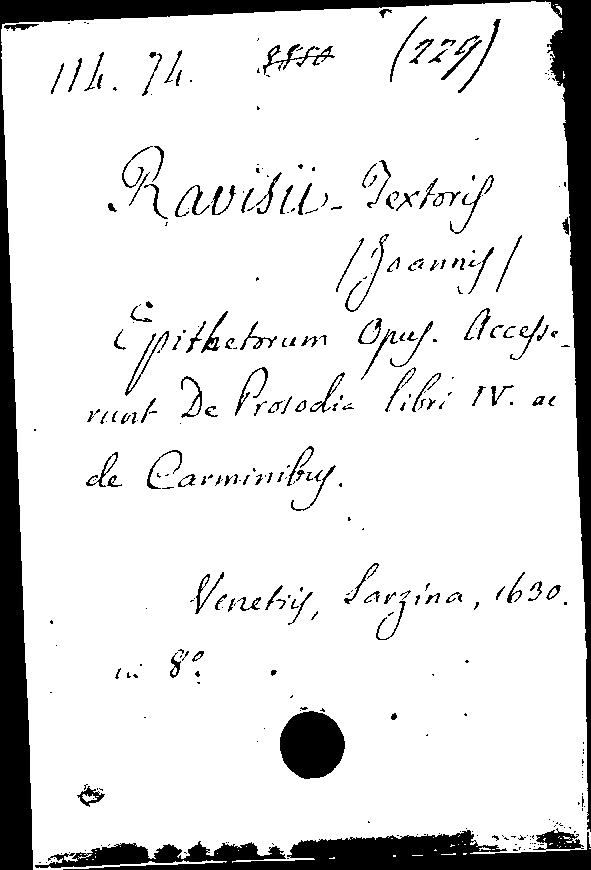 114. 74. 8850 (229)
Ravisii - Textoris
/Joannis/
Epithetorum Opus. Accesse-
runt De Prosodia libri IV. ac
de Carminibus.
Venetiis, Sarzina, 1630.
in 8°.